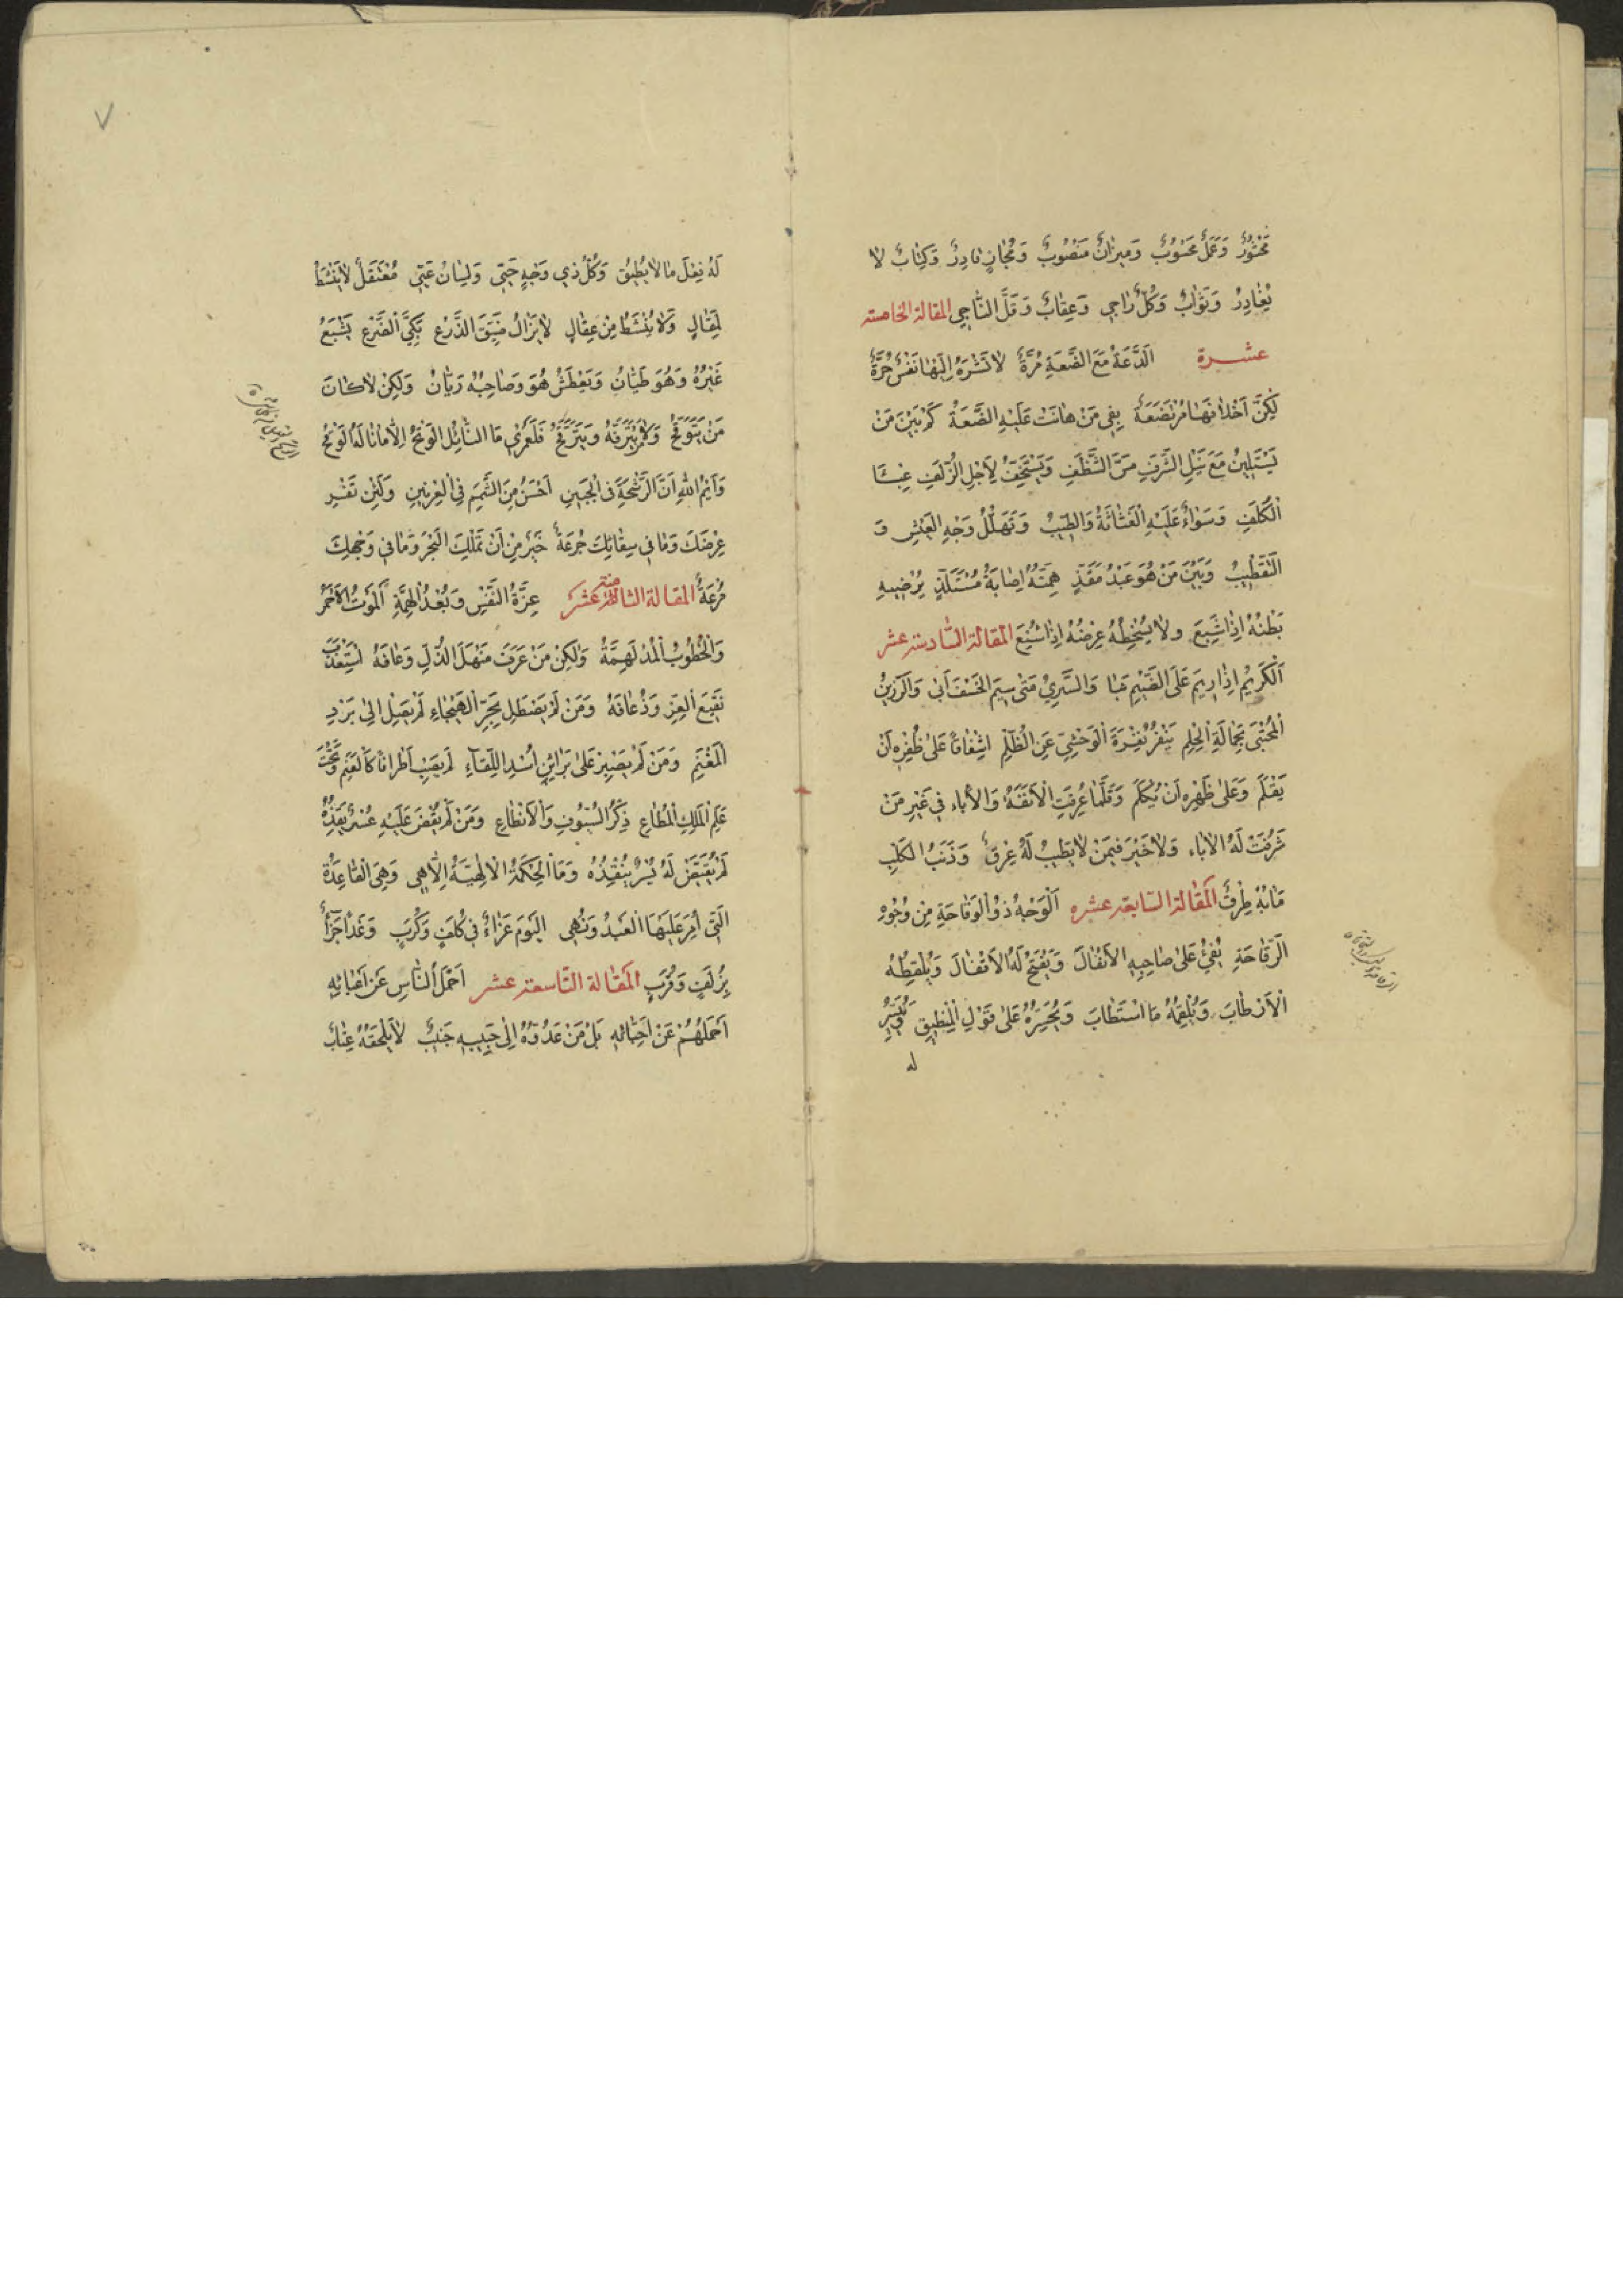 مَحْتُومٌ وَعَمَلٌ مَحْسُوبٌ وَمِيزَانٌ مَنْصُوبٌ وَمُجَازٍ قَادِرٌ وَكِتَابٌ لَا
يُغَادِرُ وَثَوَابٌ وَكُلٌّ رَاجِي وَعِقَابٌ وَقَلَّ النَّاجِي المقالة الخامسة
عشرة الدَّعَةُ مَعَ الضَّعَةِ مُرَّةٌ لَا تَشْرَهُ إِلَيْهَا نَفْسٌ حُرَّةٌ
لَكِنَّ أَخْلَافَهَا مُرْتَضَعَةٌ بِفِي مَنْ هَانَتْ عَلَيْهِ الضَّعَةُ كَمْ بَيْنَ مَنْ
يَسْتَلِينُ مَعَ نَيْلِ الشَّرَفِ مَسَّ الشَّظَفِ وَيَسْتَخِفُّ لِأَجْلِ الزُّلَفِ عِبْءَ
الْكُلَفِ وَسَوَاءٌ عَلَيْهِ الْغَثَاثَةُ وَالطِّيبُ وَتَهَلُّلُ وَجْهِ الْعَيْشِ وَ
التَّقْطِيبُ وَبَيْنَ مَنْ هُوَ عَبْدُ مَقَذٍّ هِمَّتُهُ إِصَابَةُ مُسْتَلَذٍّ يُرْضِيهِ
بَطْنُهُ إِذَا شَبِعَ وَلَا يُسْخِطُهُ عِرْضُهُ إِذَا شُنِعَ المقالة السادسة عشر
الْكَرِيمُ إِذَا رِيمَ عَلَى الضَّيْمِ نَبَا وَالسَّرِيُّ مَتَى سِيمَ الْخَسْفَ أَبَى وَالرَّزِينُ
الْمُحْتَبِي بِحِمَالَةِ الْحِلْمِ يَنْفِرُ نَفْرَةَ الْوَحْشِيِّ عَنِ الظُّلْمِ إِشْفَاقًا عَلَى ظُفْرِهِ أَنْ
يُقْلَمَ وَعَلَى ظَهْرِهِ أَنْ يُكْلَمَ وَقَلَّمَا عُرِفَتِ الْأَنَفَةُ وَالْإِبَاءُ فِي غَيْرِ مَنْ
شَرُفَتْ لَهُ الْآبَاءُ وَلَا خَيْرَ فِيمَنْ لَا يَطِيبُ لَهُ عِرْقٌ وَذَنَبُ الْكَلْبِ
مَا بِهِ طِرْقٌ المقالة السابعة عشره الْوَجْهُ ذُو الْوَقَاحَةِ مِنْ وُجُوهِ
الرَّقَاحَةِ يُفِيءُ عَلَى صَاحِبِهِ الْأَنْفَالَ وَيَفْتَحُ لَهُ الْأَقْفَالَ وَيُلْقِطُهُ
الْأَرْطَابَ وَيُلْقِمُهُ مَا اسْتَطَابَ وَيُجَسِّرُهُ عَلَى قَوْلِ الْمِنْطِيقِ وَيُيَسِّرُ
له
لَهُ فِعْلَ مَا لَا يُطِيقُ وَكُلُّ ذِي وَجْهٍ حَيِيٍّ وَلِسَانٍ عَيِيٍّ مُعْتَقَلٌ لَا يَنْشَطُ
لِمَقَالٍ وَلَا يُنْشَطُ مِنْ عِقَالٍ لَا يَزَالُ ضَيِّقَ الذَّرْعِ بَكِيَّ الضَّرْعِ يَشْبَعُ
غَيْرُهُ وَهُوَ طَيَّانُ وَيَعْطَشُ هُوَ وَصَاحِبُهُ رَيَّانُ وَلَكِنْ لَا كَانَ
مَنْ يَتَوَقَّحُ وَلَا يَتَرَفَّهُ وَيَتَرَقَّحُ فَلَعَمْرِي مَا النَّائِلُ الْوَتِحُ إِلَّا مَا نَالَهُ الْوَقِحُ
وَأَيْمُ اللَّهِ أَنَّ الرَّشْحَةَ فِي الْجَبِينِ أَحْسَنُ مِنَ الشَّمَمِ فِي الْعِرْنِينِ وَلَئِنْ تَفِرْ
عِرْضَكَ وَمَا فِي سِقَائِكَ جُرْعَةٌ خَيْرٌ مِنْ أَنْ تَمْلِكَ الْبَحْرَ وَمَا فِي وَجْهِكَ
مُزْعَةٌ المقالة الثامنة عشر عِزَّةُ النَّفْسِ وَبُعْدُ الْهِمَّةِ الْمَوْتُ الْأَحْمَرُ
وَالْخُطُوبُ الْمُدْلَهِمَّةُ وَلَكِنْ مَنْ عَرَفَ مَنْهَلَ الذُّلِّ وَعَافَهُ اسْتَعْذَبَ
نَقِيعَ الْعِزِّ وَذُعَافَهُ وَمَنْ لَمْ يَصْطَلِ بِحَرِّ الْهَيْجَاءِ لَمْ يَصِلْ إِلَى بَرْدِ
الْمَغْنَمِ وَمَنْ لَمْ يَصْبِرْ عَلَى بَرَاثِنِ أُسْدِ اللِّقَاءِ لَمْ يُصِبْ أَطْرَافًا كَالْعَنَمِ وَتَحْتَ
عَلَمِ الْمَلِكِ الْمُطَاعِ ذِكْرُ السُّيُوفِ وَالْأَنْطَاعِ وَمَنْ لَمْ يُقْضَ عَلَيْهِ عُسْرٌ يَقِذُهُ
لَمْ يُقَيَّضْ لَهُ يُسْرٌ يُنْقِذُهُ وَمَا الْحِكْمَةُ الْإِلَهِيَّةُ إِلَّا هِيَ وَهِيَ الْقَاعِدَةُ
الَّتِي أُمِرَ عَلَيْهَا الْعَبْدُ وَنُهِيَ الْيَوْمَ عَزَاءٌ فِي كُلَفٍ وَكُرَبٍ وَغَدًا جَزَاءٌ
بِزُلَفٍ وَقُرَبٍ المقالة التاسعة عشر أَحْمَلُ النَّاسِ عَنْ أَعْبَائِهِ
أَحْمَلُهُمْ عَنْ أَحِبَّائِهِ بَلْ مَنْ عَدُوُّهُ إِلَى حَبِيبِهِ جَنِيبٌ لَا يَلْحَقُهُ عِتَابٌ